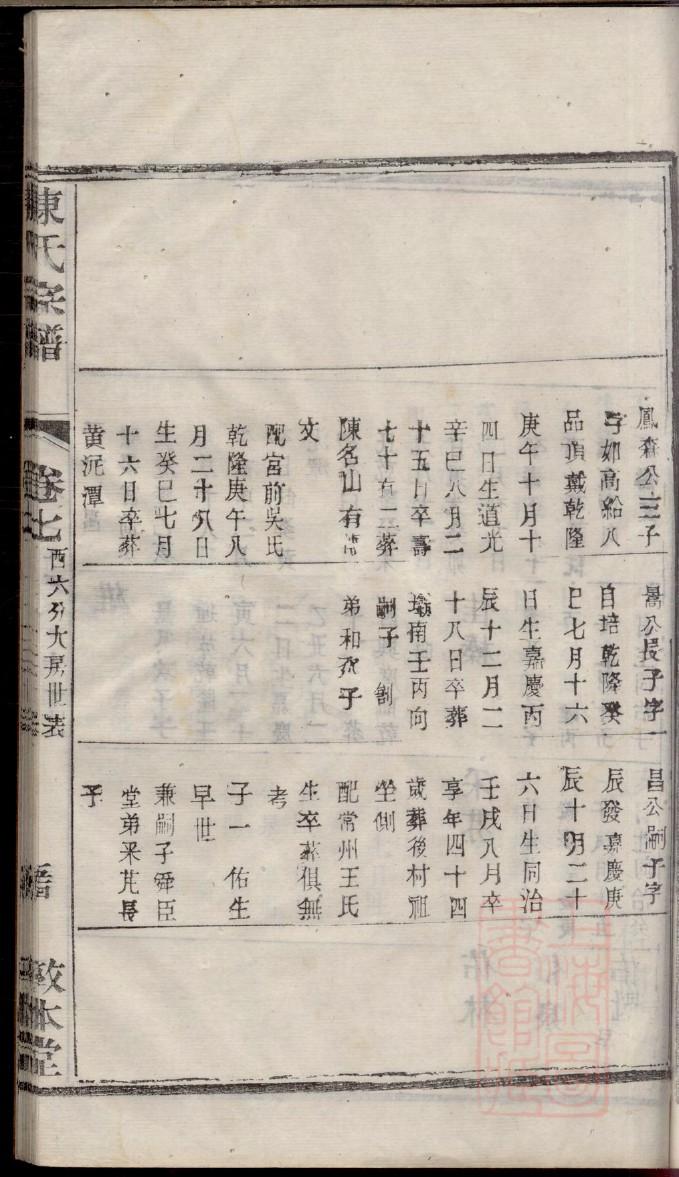 鳳森公三子
字如高給八
品頂戴乾隆
庚午十月十
四日生道光
辛巳八月二
十五日卒壽
七十有二葬
陳名山有
文
配宮前吳氏
乾隆庚午八
月二十八日
生癸巳七月
十六日卒葬
黄泥潭
暠公長子字
自培乾隆癸
巳七月十六
日生嘉慶丙
辰十二月二
十八日卒葬
南壬丙向
嗣子 釗
弟和次子
昌公嗣子字
辰發嘉慶庚
辰十月二十
六日生同治
壬戌八月卒
享年四十四
歲葬後村祖
坐側
配常州王氏
生卒葬俱無
考
子一 佑生
早世
兼嗣子舜臣
堂弟采芹長
子
陳氏宗譜
卷七
西六分大房世表
敦本堂